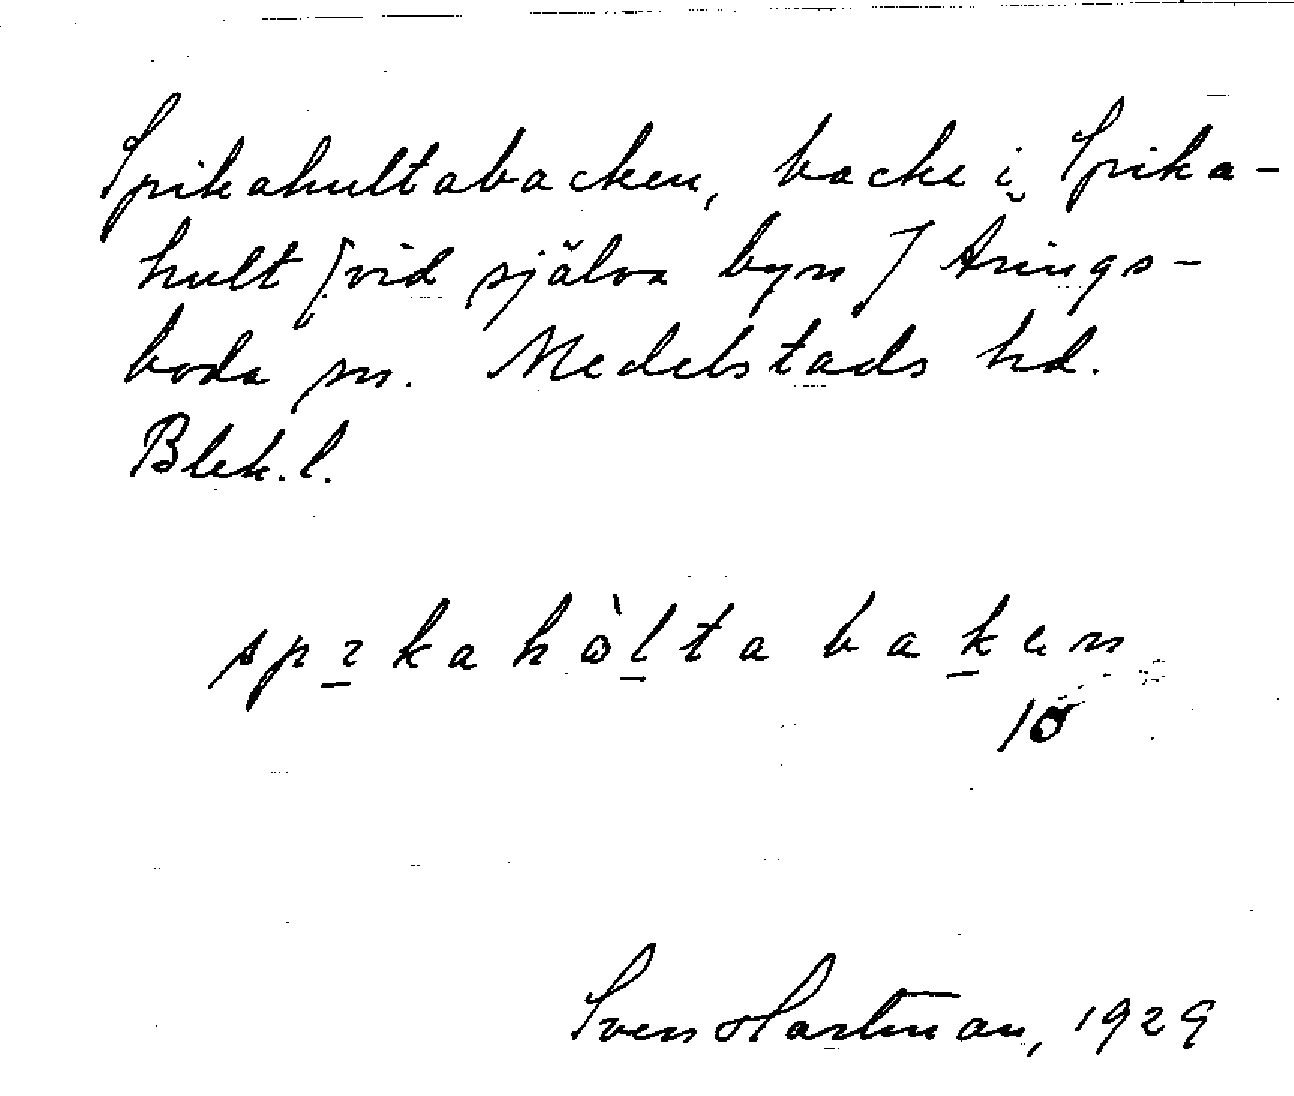 Spikahultabacken, backe i Spika-
hult [vid själva byn] Arings-
boda sn. Medelstads hd.
Blek. l.
spɪkahòltabaken
10
Sven Hartman, 1929